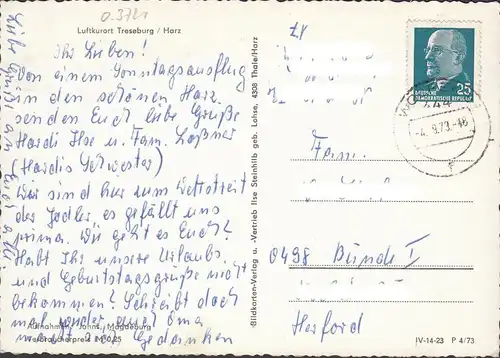 0.3721
Luftkurort Treseburg / Harz
Ihr Lieben!
Von einem Sonntagsausflug
in den schönen Harz
senden Euch liebe Grüße
Hardi Ilse u. Fam. Loßner
(Hardis Schwester)
Wir sind hier zum Wettstreit
der Jodler, es gefällt uns
prima. Wie geht es Euch?
Habt Ihr unsere Urlaubs
und Geburtstagsgrüße nicht
bekommen? Schreibt doch
mal
Oma
Gedanken
Liebe Grüße an Euch alle
Aufnahmen: Johns, Magdeburg
Verbraucherpreis M 0,25
Bildkarten-Verlag u. -Vertrieb Ilse Steinhilb geb. Lohse, 4308 Thale/Harz
25
DEUTSCHE
DEMOKRATISCHE REPUBLIK
-4.9.73.-16
Fam.
0498 Bünde I
Herford
IV-14-23 P 4/73